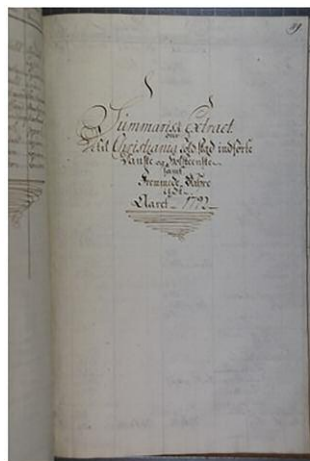 39
Summarisk Extract
over
Ved Christiania told stæd indførte
Danske og Holsteenske
samt
Fremmede Wahre
udi
Aaret 1792